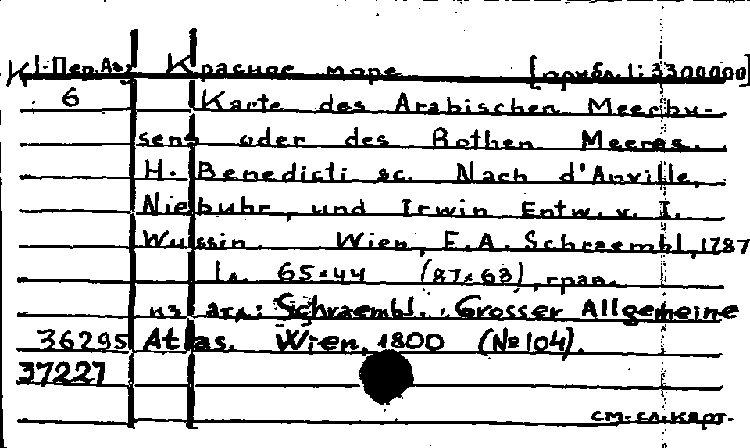 К 1-Пер.Аз. Красное море [прибл. 1:3300000]
6 Karte des Arabischen Meerbu-
sens oder des Rothen Meeres.
H. Benedicti sc. Nach d'Anville,
Niebuhr, und Irwin Entw. v. I.
Wussin. Wien, F.A. Schraembl, 1787
1 л. 65×44 (87×63), грав.
из атл: Schraembl. Grosser Allgemeine
36295 Atlas. Wien, 1800 (№104).
37227
см. сл. карт.